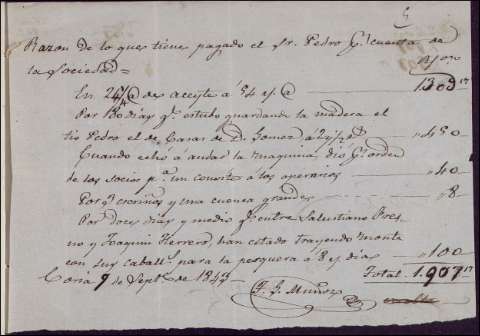 Razon de lo que tiene pagado el Sr. Pedro G. cuenta de
la Sociedad=
Rs von
En 24 1/4 @ de aceyte á 54 rs. @ 1309 17
Por 180 dias q.e estubo guardando la madera el
tio Pedro el de Casas de D. Gomez á 2 1/2 rs d.s 450
Cuando echó á andar la maquina, dió G. orden
de los socios p.a un convite a los operarios 40
Por y una cuenca grande 8
Por doce dias y medio q.e entre Salustiano Bres
no y Joaquin Herrero, han estado trayendo monte
con sus caball.s para la pesquera á 8 rs dias 100
Total 1.907 17
Coria 9 de Sept.e de 1847
Muñoz